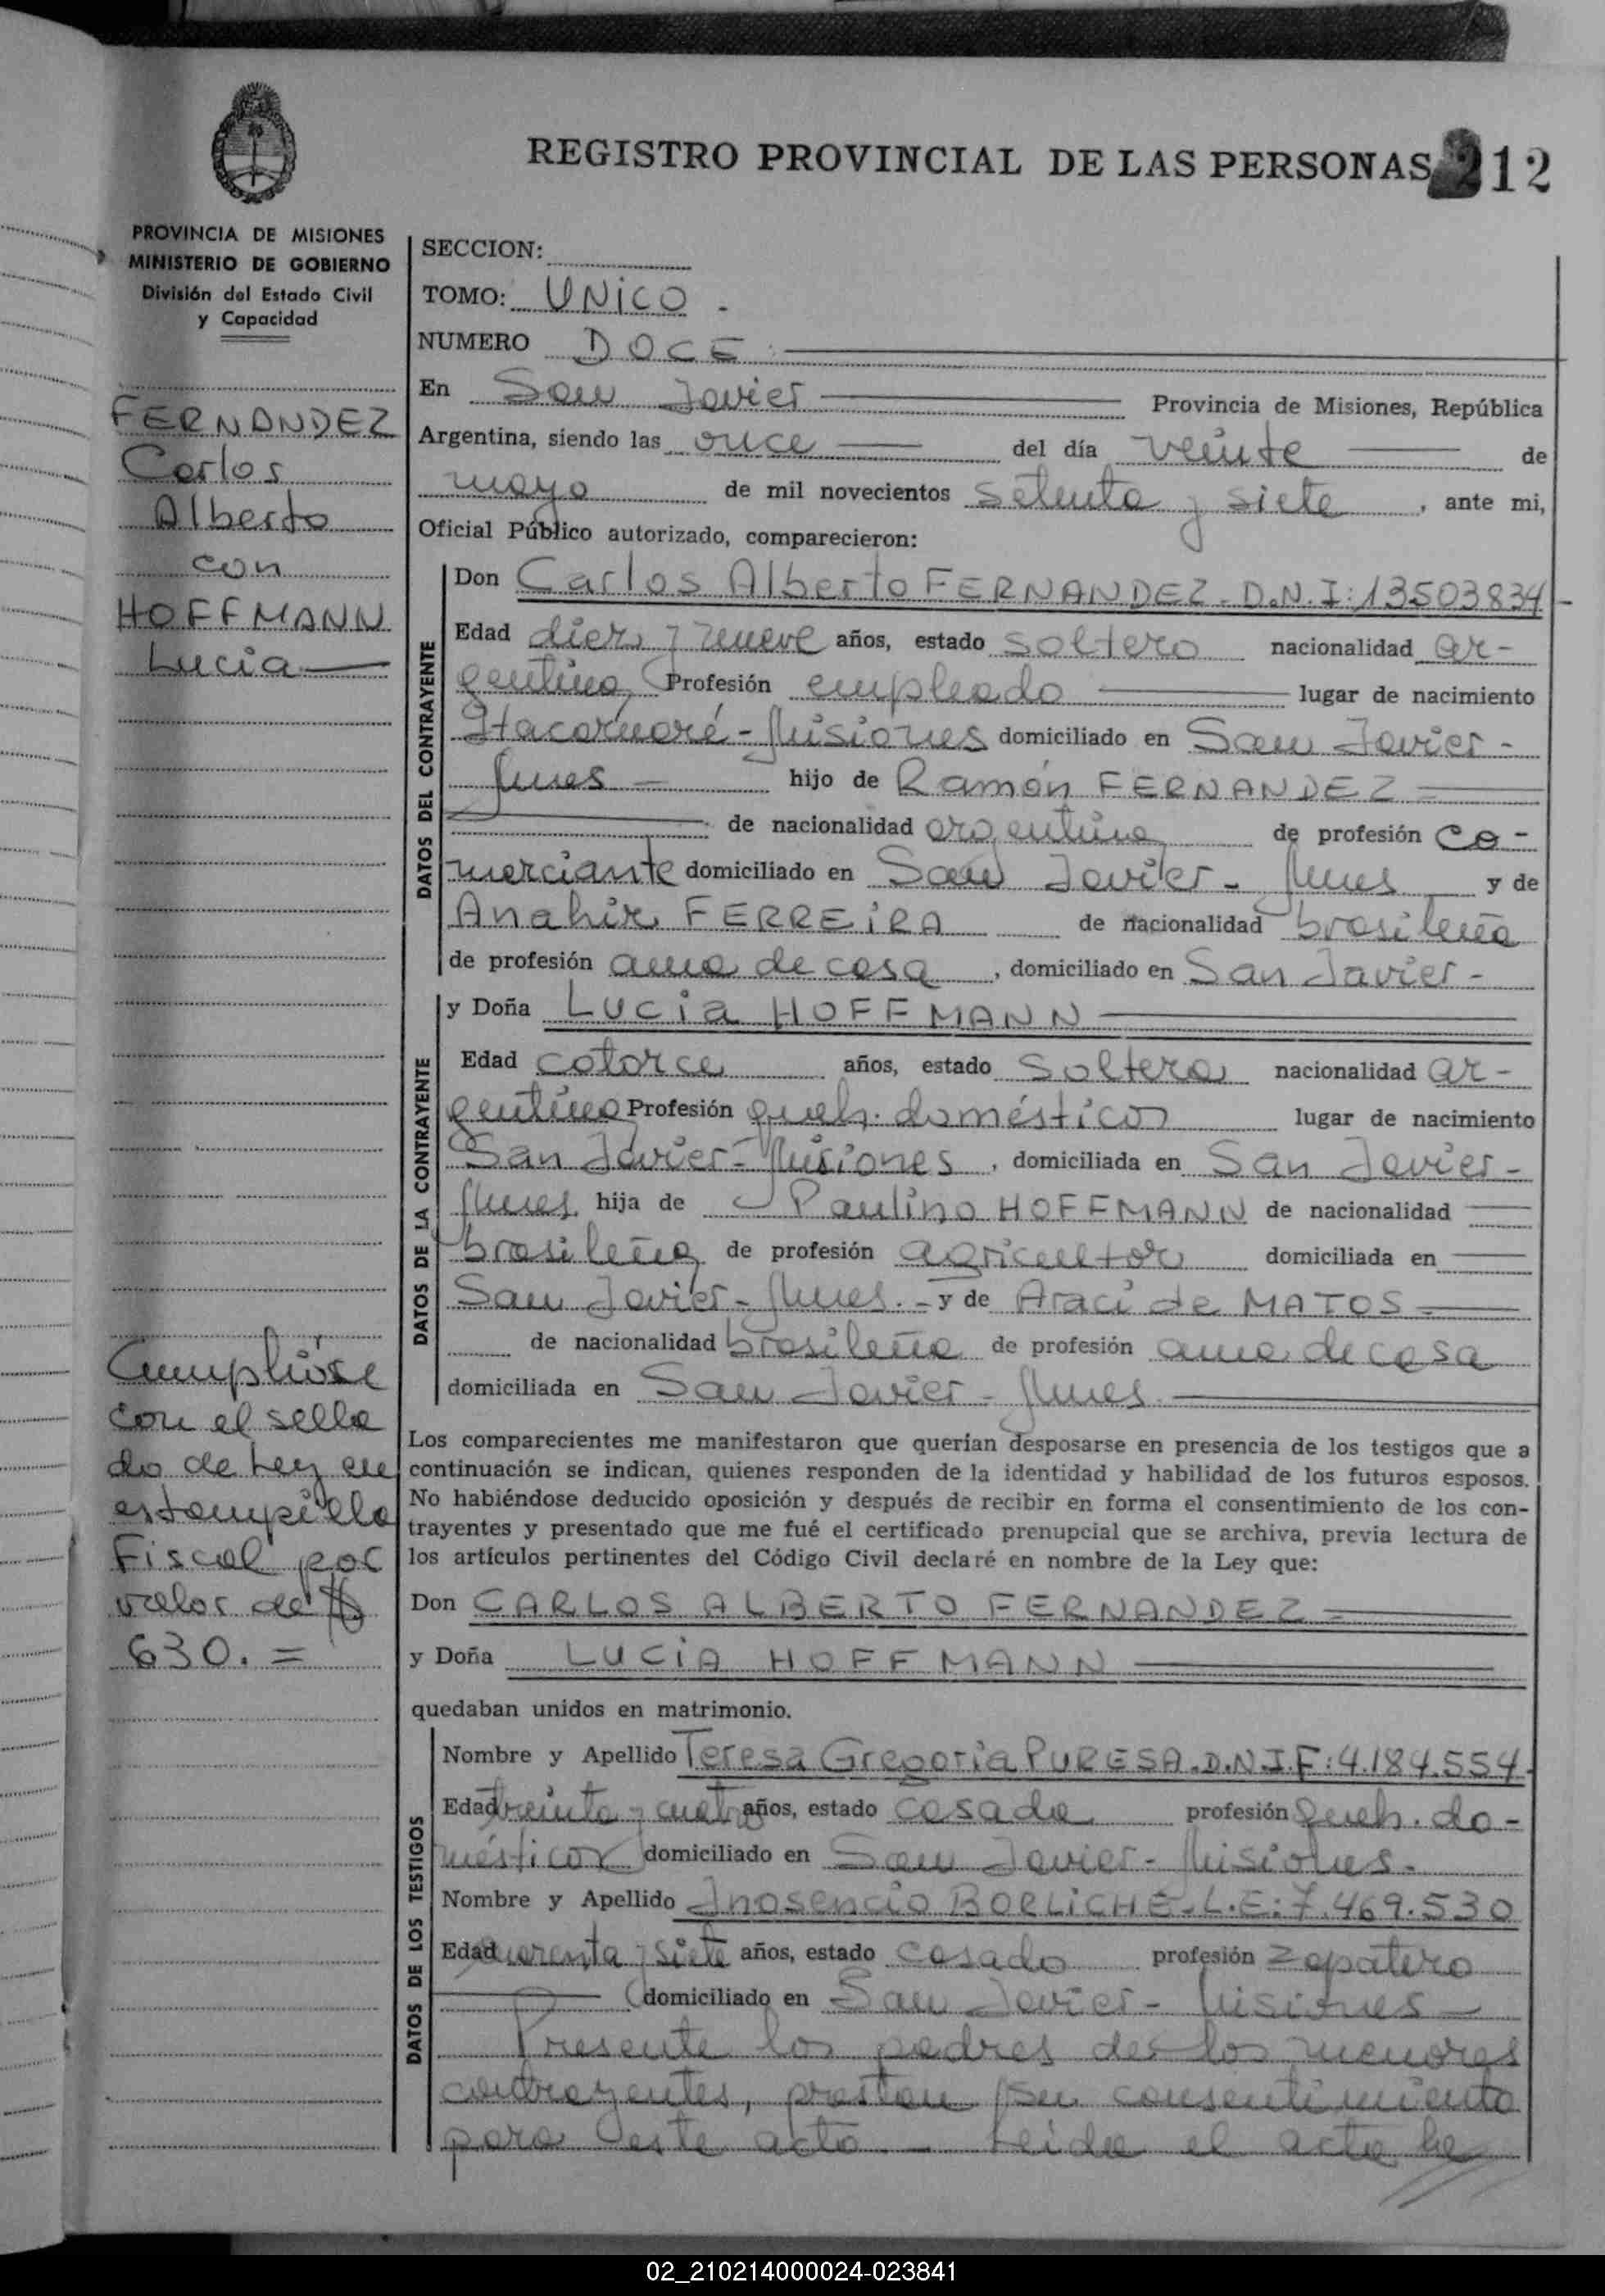 REGISTRO PROVINCIAL DE LAS PERSONAS 212
PROVINCIA DE MISIONES
MINISTERIO DE GOBIERNO
División del Estado Civil
y Capacidad
FERNANDEZ
Carlos
Alberto
con
HOFFMANN
Lucia
Cumplióse
con el sella
do de Ley en
estampilla
Fiscal por
valor de $
630.=
SECCION:
TOMO: UNICO.
NUMERO DOCE
En San Javier Provincia de Misiones, República
Argentina, siendo las once del día veinte de
mayo de mil novecientos setenta y siete, ante mi,
Oficial Público autorizado, comparecieron:
DATOS DEL CONTRAYENTE
Don Carlos Alberto FERNANDEZ. D.N.I: 13503834-
Edad diez y nueve años, estado soltero nacionalidad ar-
gentina, Profesión empleado lugar de nacimiento
Itacaruaré-Misiones domiciliado en San Javier-
Mnes hijo de Ramón FERNANDEZ
de nacionalidad argentina de profesión co-
merciante domiciliado en San Javier- Mnes y de
Anahir FERREIRA de nacionalidad brasileña
de profesión ama de casa, domiciliado en San Javier-
DATOS DE LA CONTRAYENTE
y Doña Lucia HOFFMANN
Edad catorce años, estado soltera nacionalidad ar-
gentina Profesión queh. domésticos lugar de nacimiento
San Javier-Misiones, domiciliada en San Javier-
Mnes. hija de Paulino HOFFMANN de nacionalidad
brasileña de profesión agricultor domiciliada en
San Javier- Mnes.- y de Araci de MATOS
de nacionalidad brasileña de profesión ama de casa
domiciliada en San Javier- Mnes.
Los comparecientes me manifestaron que querían desposarse en presencia de los testigos que a
continuación se indican, quienes responden de la identidad y habilidad de los futuros esposos.
No habiéndose deducido oposición y después de recibir en forma el consentimiento de los con-
trayentes y presentado que me fué el certificado prenupcial que se archiva, previa lectura de
los artículos pertinentes del Código Civil declaré en nombre de la Ley que:
Don CARLOS ALBERTO FERNANDEZ
y Doña LUCIA HOFFMANN
quedaban unidos en matrimonio.
DATOS DE LOS TESTIGOS
Nombre y Apellido Teresa Gregoria PURESA. D.N.I.F: 4.184.554.
Edad treinta y cuatro años, estado casada profesión queh. do-
mésticos domiciliado en San Javier- Misiones-
Nombre y Apellido Inosencio BORLICHE-L.E: 7.469.530
Edad cuarenta y siete años, estado casado profesión zapatero
domiciliado en San Javier- Misiones-
Presente los padres de los menores
contrayentes, prestan su consentimiento
para este acto.- Leida el acta la
02_210214000024-023841